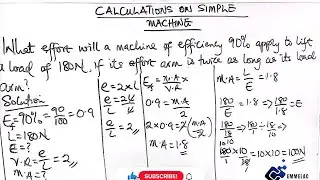 CALCULATIONS ON SIMPLE
MACHINE
What effort will a machine of efficiency 90% apply to lift
a load of 180N, if its effort arm is twice as long as its load
arm?
Solution
Ef = 90% = 90/100 = 0.9
L = 180N
E = ?
V.R = e/l = 2
M.A = ?
e = 2xl
e/l = 2l/l
e/l = 2
Ef = M.A/V.R
0.9 = M.A/2
2 x 0.9 =
M.A = 1.8
M.A = L/E
180/E = 1.8 ⇒ 180/1.8 = E
180/1.8 ⇒ 180 ÷ 18/10 ⇒
180/1 x 10/18 = 10 x 10 = 100N
SUBSCRIBE
EMMELAC